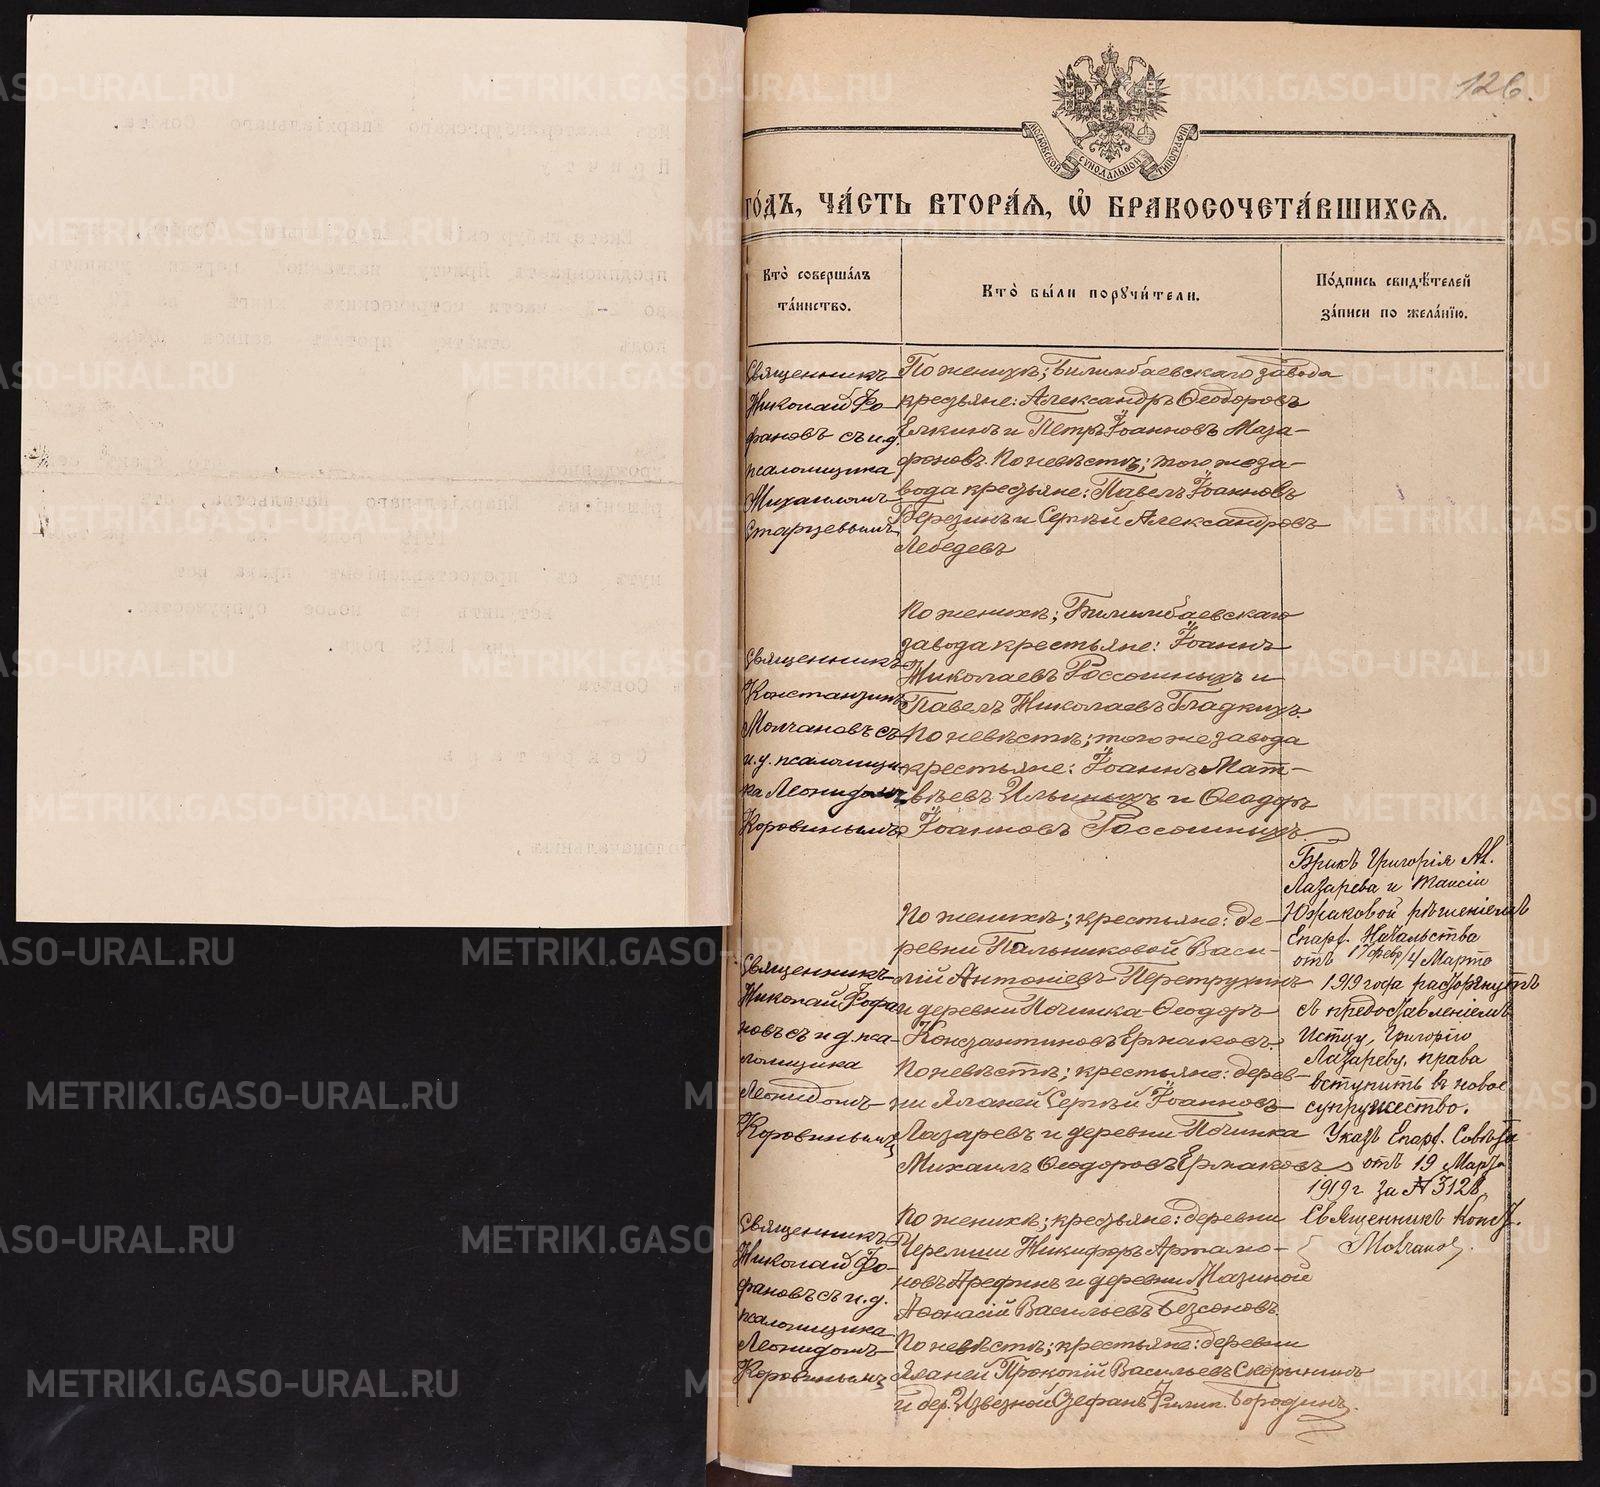 126.
МОСКОВСКОЙ СѴНОДАЛЬНОЙ ТИПОГРАФІИ
ГО́ДЪ, ЧА́СТЬ ВТОРА́Ѧ, Ѽ БРАКОСОЧЕТА́ВШИХСѦ.
Кто̀ соверша́лъ
та́инство.
Кто̀ бы́ли порꙋчи́тели.
По́дпись свидѣ́телей
за́писи по жела́нїю.
Священникъ
Николай Фо-
фановъ съ и.д.
псаломщика
Михаиломъ
Старцевымъ
По женихѣ; Билимбаевскаго завода
крестьяне: Александръ Ѳеодоровъ
Елкинъ и Петръ Іоанновъ Маза-
фоновъ. По невѣстѣ; того же за-
вода крестьяне: Павелъ Іоанновъ
Березинъ и Сергѣй Александровъ
Лебедевъ
Священникъ
Константинъ
Молчановъ съ
и.д. псаломщи-
ка Леонидомъ
Коровинымъ
По женихѣ; Билимбаевскаго
завода крестьяне: Іоаннъ
Николаевъ Россошныхъ и
Павелъ Николаевъ Гладкихъ.
По невѣстѣ; того же завода
крестьяне: Іоаннъ Мат-
вѣевъ Ильиныхъ и Ѳеодоръ
Іоанновъ Россошныхъ
Священникъ
Николай Фофа-
новъ съ и д. пса-
ломщика
Леонидомъ
Коровинымъ
По женихѣ; крестьяне: де-
ревни Пильниковой Васи-
лій Антоніевъ Перетрухинъ
и деревни Починка Ѳеодоръ
Константиновъ Ермаковъ.
По невѣстѣ; крестьяне: дерев-
ни Яланей Сергѣй Іоанновъ
Лазаревъ и деревни Починка
Михаилъ Ѳеодоровъ Ермаковъ
Бракъ Григорія Ал.
Лазарева и Таисіи
Южаковой рѣшеніемъ
Епарх. Начальства
отъ 17 февр/4 Марта
1919 года расторгнутъ
съ предоставленіемъ
Истцу, Григорію
Лазареву, права
вступить въ новое
супружество.
Указъ Епарх. Совѣта
отъ 19 Марта
1919 г за № 3128
Священникъ Конст.
Молчановъ.
Священникъ
Николай Фо-
фановъ съ и.д.
псаломщика
Леонидомъ
Коровинымъ
По женихѣ; крестьяне: деревни
Черемши Никифоръ Артамо-
новъ Арефинъ и деревни Мазиной
Аѳонасій Васильевъ Безсоновъ
По невѣстѣ; крестьяне: деревни
Яланей Прокопій Васильевъ Скорынинъ
и дер. Извезной Стефанъ Филип. Бородинъ.
METRIKI.GASO-URAL.RU